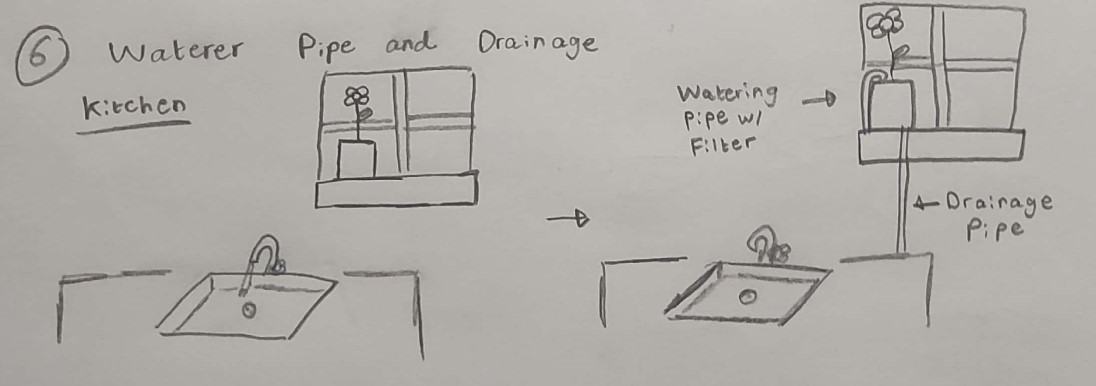 6 Waterer Pipe and Drainage
Kitchen
Watering
Pipe w/
Filter
Drainage
Pipe